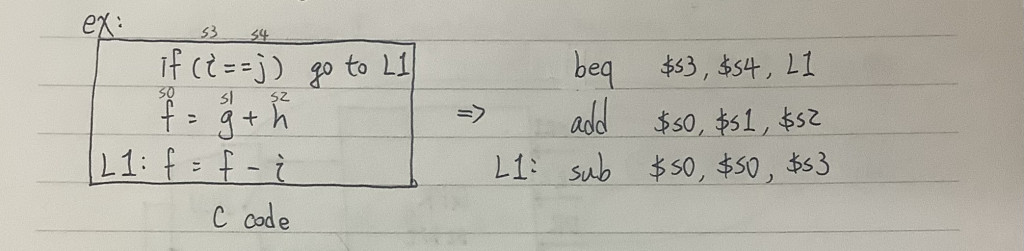 ex:
s3 s4
if (i==j) go to L1
s0 s1 s2
f = g + h
L1: f = f - i
C code
=>
beq $s3, $s4, L1
add $s0, $s1, $s2
L1: sub $s0, $s0, $s3